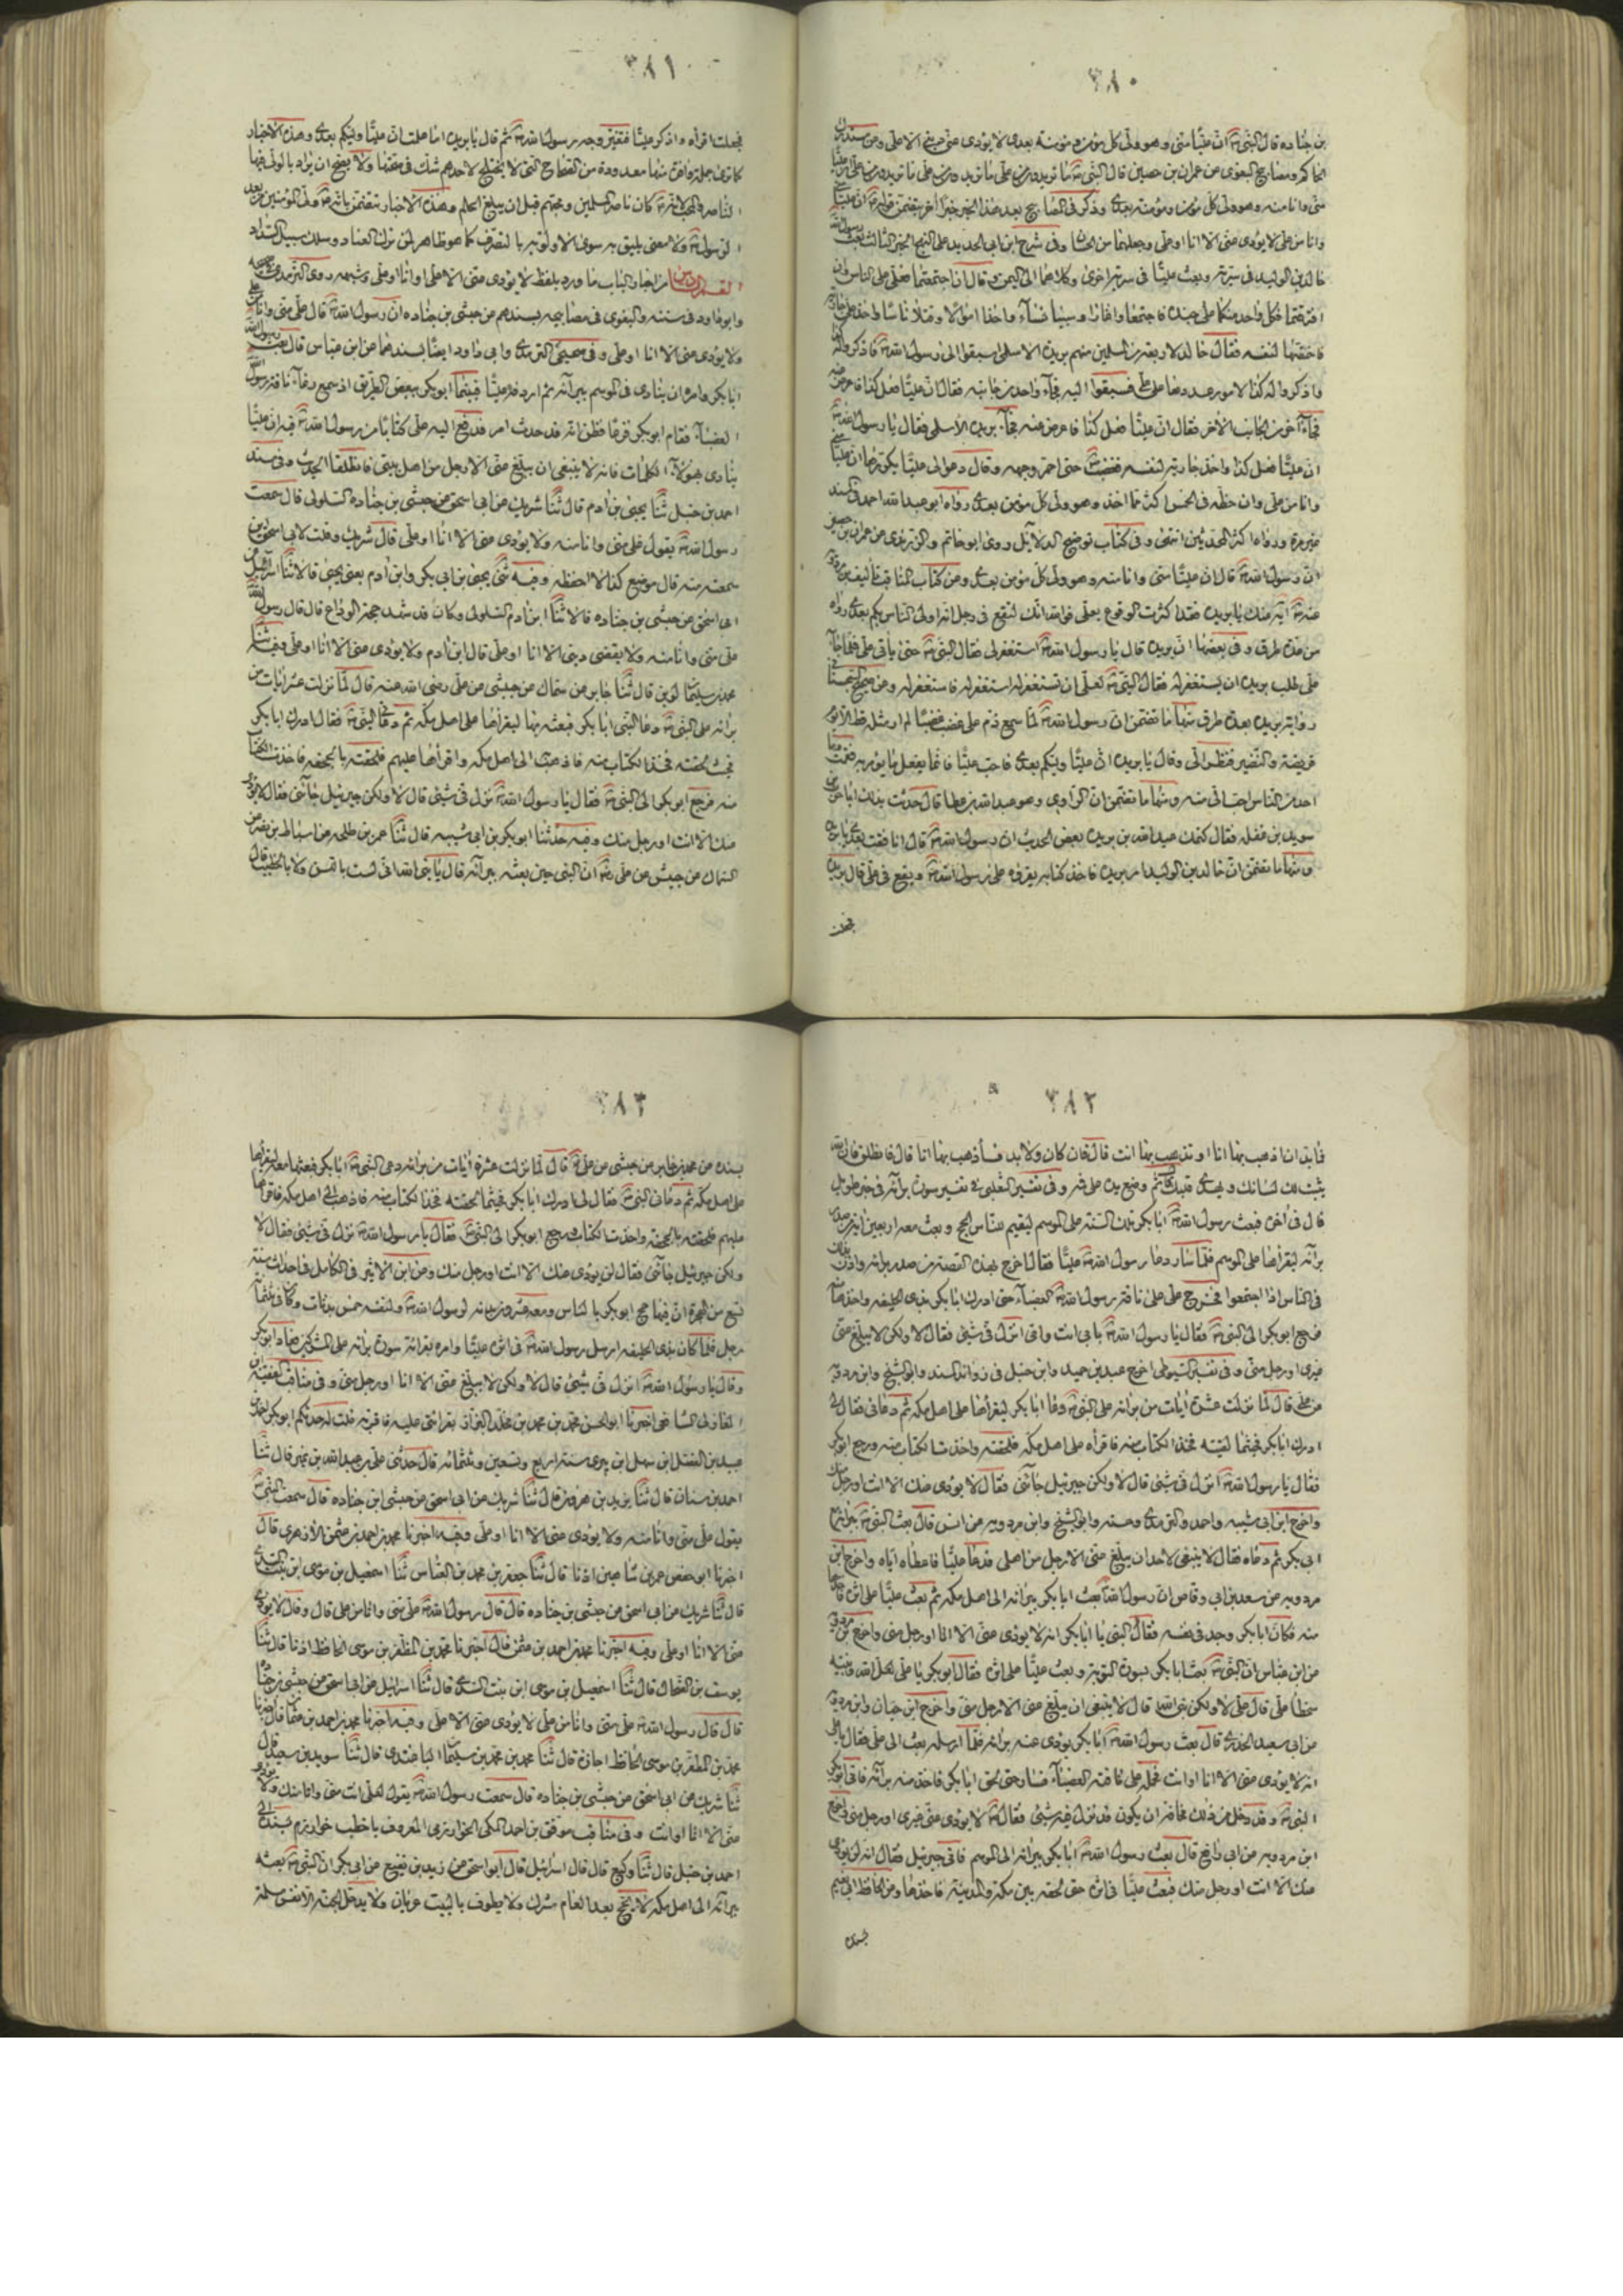 ٣٨٠
بن جناده قال النبي ان عليا مني وهو ولي كل مؤمن ومؤمنة بعدي لا يؤدي عني الا علي ومن
الحاكم ومصابيح البغوي عن عمران بن حصين قال النبي ما تريدون من علي ما تريدون من علي ما تريدون من علي
مني وانا منه وهو ولي كل مؤمن ومؤمنة بعدي وذكر في المصابيح بعد هذا الخبر خبرا اخر يتضمن قوله ان عليا مني
وانا من علي لا يؤدي عني الا انا او علي وجعلهما من الحسان وفي شرح ابن ابي الحديد على النهج الخبر الثالث بعث رسول الله
خالد بن الوليد في سرية وبعث عليا في سرية اخرى وكلاهما الى اليمن وقال ان اجتمعتما فعلي على الناس وان
افترقتما فكل واحد منكما على جنده فاجتمعا واغارا وسبيا نساء واخذا اموالا وقتلا ناسا واخذ علي جارية
فاختصها لنفسه فقال خالد لاربعة من المسلمين منهم بريدة الاسلمي اسبقوا الى رسول الله فاذكروا له كذا
واذكروا له كذا لامور عددها على علي فسبقوا اليه فجاء واحد من جانبه فقال ان عليا فعل كذا فاعرض عنه
فجاء آخر من الجانب الآخر فقال ان عليا فعل كذا فاعرض عنه فجاء بريدة الاسلمي فقال يا رسول الله
ان عليا فعل كذا واخذ جارية لنفسه فغضب حتى احمر وجهه وقال دعوا لي عليا يكررها ان عليا مني
وانا من علي وان حظه في الخمس اكثر مما اخذ وهو ولي كل مؤمن بعدي رواه ابو عبد الله احمد في المسند
غير مرة ورواه اكثر المحدثين انتهى وفي كتاب توضيح الدلايل روى ابو حاتم والترمذي عن عمران بن حصين
ان رسول الله قال ان عليا مني وانا منه وهو ولي كل مؤمن بعدي ومن كتاب المناقب تأليف ابن مردويه
عنه ايه عنك يا بريدة فقد اكثرت الوقوع بعلي فوالله انك لتقع في رجل انه اولى الناس بكم بعدي رواه
من عدة طرق وفي بعضها ان بريدة قال يا رسول الله استغفر لي فقال النبي حتى ياتي علي فلما جاء
علي طلب بريدة ان يستغفر له فقال النبي لعلي ان تستغفر له استغفر له فاستغفر له ومن
رواية بريدة بعدة طرق منها ما تتضمن ان رسول الله لما سمع ذم علي غضب غضبا لم ار مثله قط الا يوم
قريضة والنضير فنظر الي وقال يا بريدة ان عليا وليكم بعدي فاحب عليا فانما يفعل ما يؤمر به فقمت وما
احد من الناس احب الي منه ومنها ما تتضمن ان الراوي وهو عبد الله بن عطا قال حدثت بذلك ابا حرب بن
سويد بن غفله فقال كتمك عبد الله بن بريدة بعض الحديث ان رسول الله قال انافقت بعدي يا بريدة
ومنها ما تتضمن ان خالد بن الوليد امر بريدة فاخذ كتابه يقرؤه على رسول الله ويقع في علي قال بريدة
فجعلت
٣٨١
فجعلت اقرأه واذكر عليا فتغير وجه رسول الله ثم قال يا بريدة اما علمت ان عليا وليكم بعدي وهذه الاخبار
كما ترى جملة وافرة منها معدودة من الصحاح التي لا يختلج لاحدهم شك في صحتها ولا يصح ان يراد بالولي فيها
الناصر والمحب كان ناصر المسلمين ومحبهم قبل ان يبلغ الحلم وهذه الاخبار تتضمن بانه ولي المؤمنين بعد
الرسول ولا معنى يليق به سوى الاولوية بالتصرف كما هو ظاهر لمن ترك العناد وسلك سبيل السداد
القسم الثامن من اخبار الباب ما ورد بلفظ لا يؤدي عني الا علي او انا او علي وشبهه روى الترمذي في صحيحه
وابو داود في سننه والبغوي في مصابيحه بسندهم عن حبشي بن جناده ان رسول الله قال علي مني وانا من علي
ولا يؤدي عني الا انا او علي وفي صحيحي الترمذي وابي داود ايضا بسندهما عن ابن عباس قال بعث رسول الله
ابا بكر وامره ان ينادي في الموسم ببراءة ثم اردفه عليا فبينما ابو بكر ببعض الطريق اذ سمع رغاء ناقة رسول الله
العضباء فقام ابو بكر فزعا فظن انه قد حدث امر فدفع اليه علي كتابا من رسول الله فيه ان عليا
ينادي بهؤلاء الكلمات فانه لا ينبغي ان يبلغ عني الا رجل من اهل بيتي فانطلقا الحديث وفي مسند
احمد بن حنبل ثنا يحيى بن ادم قال ثنا شريك عن ابي اسحق عن حبشي بن جناده السلولي قال سمعت
رسول الله يقول علي مني وانا منه ولا يؤدي عني الا انا او علي قال شريك وقلت لابي اسحق اين
سمعته منه قال موضع كذا لا احفظه وفيه ثنا يحيى بن ابي بكير وابن ادم يعني يحيى قالا ثنا اسرائيل عن
ابي اسحق عن حبشي بن جناده قالا ثنا ابن ادم السلولي وكان قد شهد حجة الوداع قال قال رسول الله
علي مني وانا منه ولا يقضي ديني الا انا او علي قال ابن ادم ولا يؤدي عني الا انا او علي وفيه ثنا
محمد بن سليمان لوين قال ثنا محمد بن جابر عن سماك عن حبشي عن علي رضي الله عنه قال لما نزلت عشر ايات من
براءة على النبي دعا النبي ابا بكر فبعثه بها ليقراها على اهل مكه ثم دعاني النبي فقال ادرك ابا بكر
فحيث لحقته فخذ الكتاب منه فاذهب الى اهل مكه واقراها عليهم فلحقته بالجحفه فاخذت الكتاب
منه فرجع ابو بكر الى النبي فقال يا رسول الله نزل في شيء قال لا ولكن جبرئيل جائني فقال لا يؤدي
عنك الا انت او رجل منك وفيه حدثنا ابو بكر بن ابي شيبه قال ثنا عمرو بن طلحه عن اسباط بن نصر عن
السماك عن حبيش عن علي ان النبي حين بعثه ببراءة قال يا نبي الله اني لست باللسن ولا بالخطيب قال
٣٨٢
فلا بد ان اذهب بها انا او تذهب بها انت قال فان كان ولا بد فسأذهب بها انا قال فانطلق فان الله
يثبت لك لسانك ويهدي قلبك ثم وضع يده على فيه وفي تفسير الثعلبي في تفسير سورة براءة في خبر طويل
قال في اخره فبعث رسول الله ابا بكر تلك السنه على الموسم ليقيم للناس الحج وبعث معه اربعين اية من صدر
براءة ليقراها على الموسم فلما سار دعا رسول الله عليا فقال اخرج بهذه القصة من صدر براءه واذن بذلك
في الناس اذا اجتمعوا فخرج علي على ناقة رسول الله العضباء حتى ادرك ابا بكر بذي الحليفه واخذها منه
فرجع ابو بكر الى النبي فقال يا رسول الله بابي انت وامي انزل في شيء فقال لا ولكن لا يبلغ عني
غيري او رجل مني وفي تفسير السيوطي اخرج عبد بن حميد وابن حنبل في زوائد المسند وابو الشيخ وابن مردويه
عن علي قال لما نزلت عشر ايات من براءه على النبي دعا ابا بكر ليقراها على اهل مكه ثم دعاني فقال لي
ادرك ابا بكر فحيثما لقيته فخذ الكتاب منه فاقرأه على اهل مكه فلحقته واخذت الكتاب منه ورجع ابو بكر
فقال يا رسول الله انزل في شيء قال لا ولكن جبرئيل جائني فقال لا يؤدي عنك الا انت او رجل منك
واخرج ابن ابي شيبه واحمد والترمذي وحسنه وابو الشيخ وابن مردويه عن انس قال بعث النبي ببراءة مع
ابي بكر ثم دعاه فقال لا ينبغي لاحد ان يبلغ عني الا رجل من اهلي فدعا عليا فاعطاه اياه واخرج ابن
مردويه عن سعد بن ابي وقاص ان رسول الله بعث ابا بكر ببراءه الى اهل مكه ثم بعث عليا على اثره فاخذها
منه فكان ابا بكر وجد في نفسه فقال النبي يا ابا بكر انه لا يؤدي عني الا انا او رجل مني واخرج ابن مردويه
عن ابن عباس ان النبي بعث ابا بكر بسورة التوبه وبعث عليا على اثره فقال ابو بكر يا علي لعل الله ونبيه
سخطا علي قال علي لا ولكن نبي الله قال لا ينبغي ان يبلغ عني الا رجل مني واخرج ابن حبان وابن مردويه
عن ابي سعيد الخدري قال بعث رسول الله ابا بكر يؤدي عنه براءه فلما ارسله بعث الى علي فقال يا علي
انه لا يؤدي عني الا انا او انت فحمله على ناقته العضباء فسار حتى لحق ابا بكر فاخذ منه براءه فاتى ابو بكر
النبي وقد دخل من ذلك مخافة ان يكون قد نزل فيه شيء فقال لا يؤدي عني غيري او رجل مني واخرج
ابن مردويه عن ابي رافع قال بعث رسول الله ابا بكر ببراءه الى الموسم فاتى جبرئيل فقال انه لن يؤدي
عنك الا انت او رجل منك فبعث عليا في اثره حتى لحقه بين مكه والمدينة فاخذها ومن الحافظ ابي نعيم
بسنده
٣٨٣
بسنده عن محمد بن جابر عن حبشي عن علي قال لما نزلت عشرة ايات من براءه دعى النبي ابا بكر فبعثها معه ليقراها
على اهل مكه ثم دعاني النبي فقال لي ادرك ابا بكر فحيثما لحقته فخذ الكتاب منه فاذهب الى اهل مكه فاقراها
عليهم فلحقته بالجحفه واخذت الكتاب ورجع ابو بكر الى النبي فقال يا رسول الله نزل في شيء فقال لا
ولكن جبرئيل جائني فقال لن يؤدي عنك الا انت او رجل منك ومن ابن الاثير في الكامل في احداث سنه
تسع من الهجرة ان فيها حج ابو بكر بالناس ومعه عشرون بدنه لرسول الله ولنفسه خمس بدنات وكان في ثلثمائة
رجل فلما كان بذي الحليفه ارسل رسول الله في اثره عليا وامره بقرائة سورة براءه على المشركين فعاد ابو بكر
وقال يا رسول الله انزل في شيء قال لا ولكن لا يبلغ عني الا انا او رجل مني وفي مناقب الفقيه ابن
المغازلي الشافعي اخبرنا ابو الحسن محمد بن محمد بن مخلد البزاز بقرائتي عليه فاقر به قلت له حدثكم ابو بكر احمد بن
عبيد بن الفضل ابن سهل ابن بيري سنه اربع وتسعين وثلثمائه قال حدثني علي بن عبد الله بن مبشر قال ثنا
احمد بن سنان قال ثنا يزيد بن هرون قال ثنا شريك عن ابي اسحق عن حبشي ابن جناده قال سمعت النبي
يقول علي مني وانا منه ولا يؤدي عني الا انا او علي وفيه اخبرنا محمد بن احمد بن عثمن الازهري قال
اخبرنا ابو حفص عمر بن شاهين اذنا قال ثنا جعفر بن محمد بن العباس ثنا اسمعيل بن موسى ابن بنت السدي
قال ثنا شريك عن ابي اسحق عن حبشي بن جناده قال قال رسول الله علي مني وانا من علي قال وقال لا يؤدي
عني الا انا او علي وفيه اخبرنا محمد بن احمد بن عثمن قال اخبرنا محمد بن المظفر بن موسى الحافظ اذنا قال ثنا
يوسف بن الضحاك قال ثنا اسمعيل بن موسى ابن بنت السدي قال ثنا اسرائيل عن ابي اسحق عن حبشي بن جناده
قال قال رسول الله علي مني وانا من علي لا يؤدي عني الا علي وفيه اخبرنا محمد بن احمد بن عثمان قال اخبرنا
محمد بن المظفر بن موسى الحافظ اجازة قال ثنا محمد بن محمد بن سليمان الباغندي قال ثنا سويد بن سعيد قال
ثنا شريك عن ابي اسحق عن حبشي بن جناده قال سمعت رسول الله يقول لعلي انت مني وانا منك ولا يؤدي
عني الا انا او انت وفي مناقب موفق بن احمد المكي الخوارزمي المعروف باخطب خوارزم بسنده الى
احمد بن حنبل قال ثنا وكيع قال قال اسرائيل قال ابو اسحق عن زيد بن يثيع عن ابي بكر ان النبي بعثه
ببراءه الى اهل مكه لا يحج بعد العام مشرك ولا يطوف بالبيت عريان ولا يدخل الجنه الا نفس مسلمه